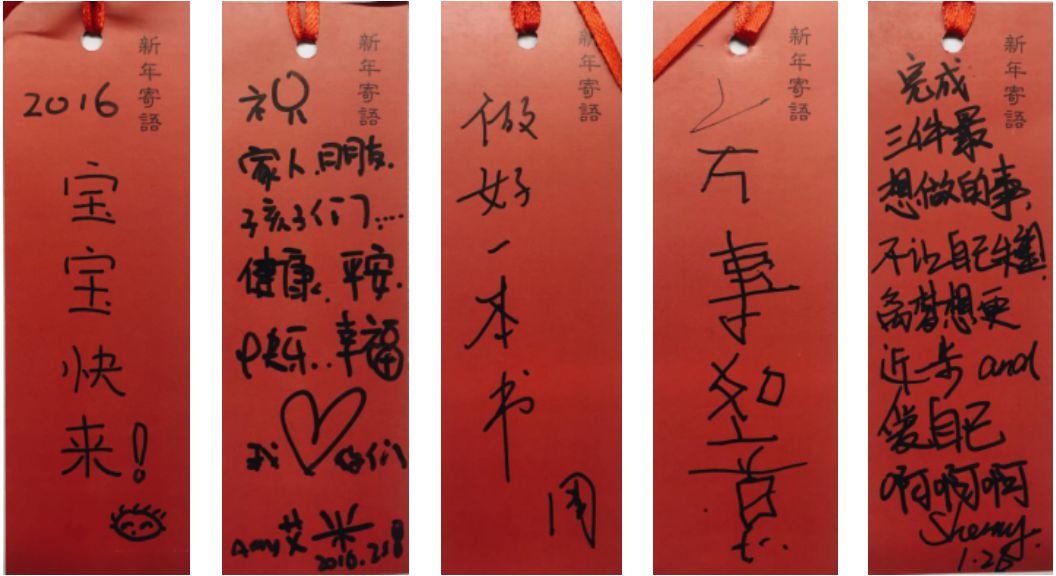 新年寄語
2016
宝
宝
快
来!
新年寄語
祝
家人.朋友.
孩子们…
健康.平安.
快乐.幸福
我 你们
Amy 艾米
新年寄語
做
好
一
本
书
周
新年寄語
万
事
如
意
新年寄語
完成
三件最
想做的事,
不让自己
离梦想更
近一步 and
爱自己
啊啊啊
1.28